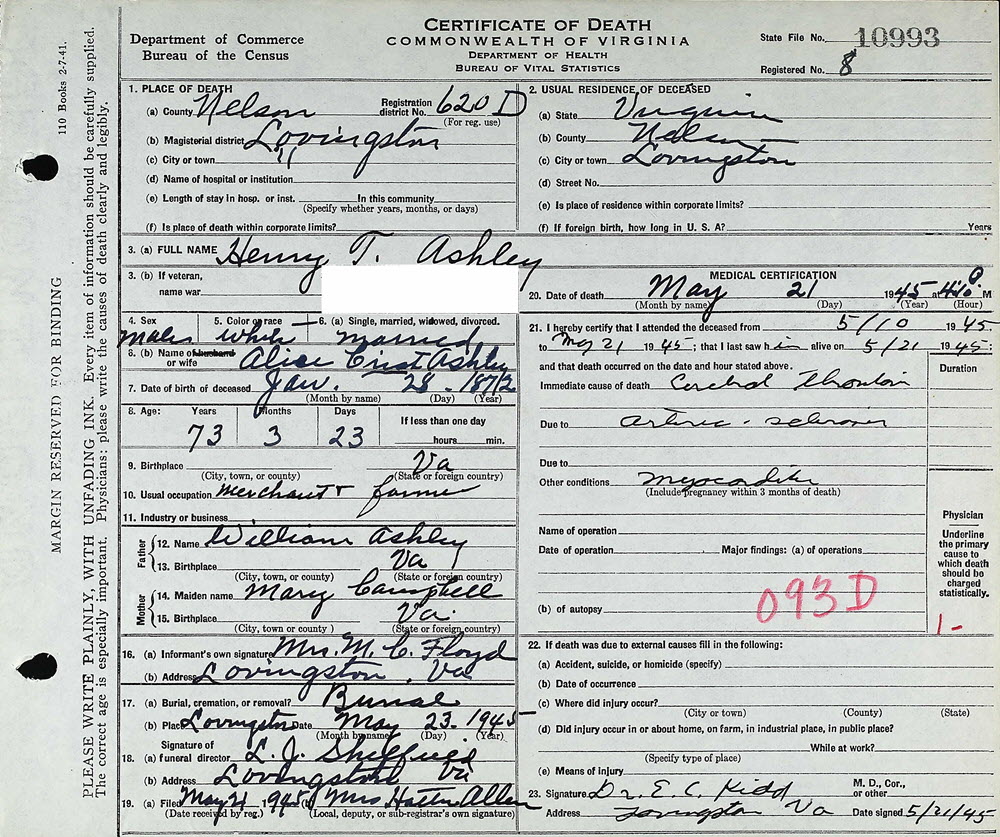 CERTIFICATE OF DEATH
COMMONWEALTH OF VIRGINIA
DEPARTMENT OF HEALTH
BUREAU OF VITAL STATISTICS
Department of Commerce
Bureau of the Census
State File No. 10993
Registered No. 8
110 Books 2-7-41.
MARGIN RESERVED FOR BINDING
PLEASE WRITE PLAINLY, WITH UNFADING INK. Every item of information should be carefully supplied.
The correct age is especially important. Physicians; please write the causes of death clearly and legibly.
1. PLACE OF DEATH
(a) County Nelson Registration district No. 620 D
(For reg. use)
(b) Magisterial district Lovingston
(c) City or town "
(d) Name of hospital or institution
(e) Length of stay in hosp. or inst. In this community
(Specify whether years, months, or days)
(f) Is place of death within corporate limits?
2. USUAL RESIDENCE OF DECEASED
(a) State Virginia
(b) County Nelson
(c) City or town Lovingston
(d) Street No.
(e) Is place of residence within corporate limits?
(f) If foreign birth, how long in U. S. A? Years
3. (a) FULL NAME Henry T. Ashley
3. (b) If veteran,
name war
4. Sex 5. Color or race 6. (a) Single, married, widowed, divorced.
Male white married
6. (b) Name of husband
or wife Alice Crist Ashley
7. Date of birth of deceased Jan. 28 - 1872
(Month by name) (Day) (Year)
8. Age: Years Months Days If less than one day
73 3 23 hours min.
9. Birthplace Va
(City, town, or county) (State or foreign country)
10. Usual occupation Merchant + farmer
11. Industry or business
Father
12. Name William Ashley
13. Birthplace Va
(City, town, or county) (State or foreign country)
Mother
14. Maiden name Mary Campbell
15. Birthplace Va.
(City, town, or county ) (State or foreign country)
16. (a) Informant's own signature Mrs. M. C. Floyd
(b) Address Lovingston, Va
17. (a) Burial, cremation, or removal? Burial
(b) Place Lovingston Date May 23. 1945
(Month by name) (Day) (Year)
Signature of
18. (a) funeral director L. J. Sheffield
(b) Address Lovingston, Va
19. (a) Filed May 21 1945 (b) Mrs Hattie Allen
(Date received by reg.) (Local, deputy, or sub-registrar's own signature)
MEDICAL CERTIFICATION
20. Date of death May 21 1945 at P M
(Month by name) (Day) (Year) (Hour)
21. I hereby certify that I attended the deceased from 5/10 1945.
to May 21 1945; that I last saw him alive on 5/21 1945;
and that death occurred on the date and hour stated above.
Duration
Immediate cause of death Cerebral Thrombosis
Due to Arterio-sclerosis
Due to
Other conditions myocarditis
(Include pregnancy within 3 months of death)
Name of operation
Date of operation Major findings: (a) of operations
(b) of autopsy
093 D
Physician
Underline
the primary
cause to
which death
should be
charged
statistically.
1-
22. If death was due to external causes fill in the following:
(a) Accident, suicide, or homicide (specify)
(b) Date of occurrence
(c) Where did injury occur?
(City or town) (County) (State)
(d) Did injury occur in or about home, on farm, in industrial place, in public place?
While at work?
(Specify type of place)
(e) Means of injury
23. Signature Dr. E. C. Kidd M. D., Cor.,
or other
Address Lovingston Va Date signed 5/21/45